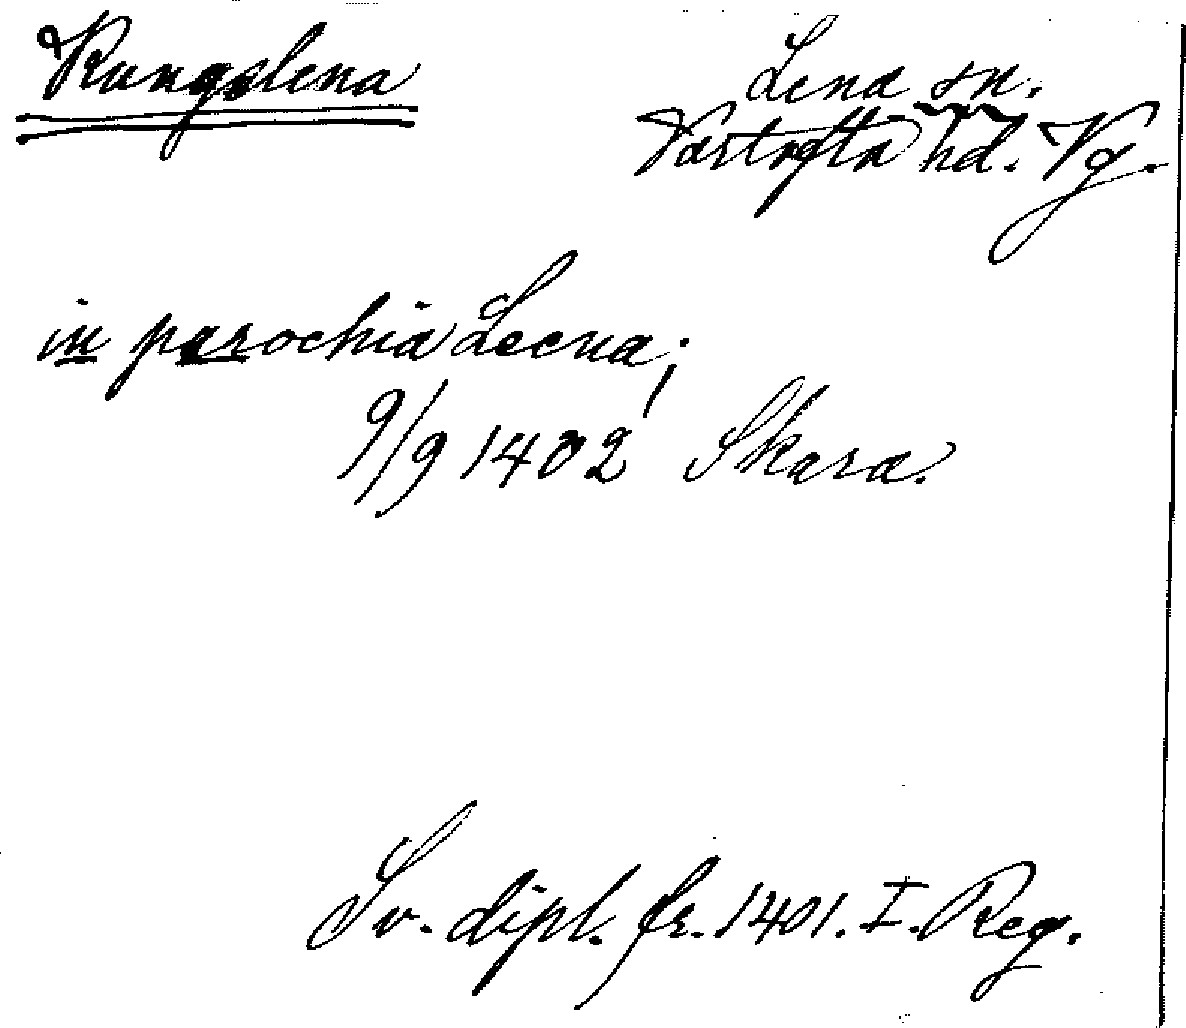 Kungslena
Lena sn.
Vartofta hd. Vg.
in parochia Leena;
9/9 1402 Skara.
Sv. dipl. fr. 1401. I. Reg.